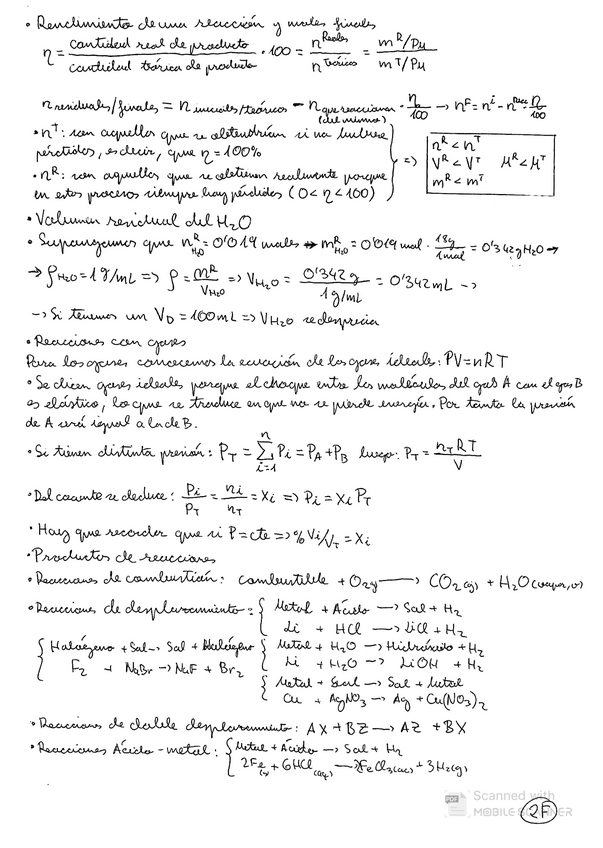 • Rendimiento de una reacción y moles finales
η = cantidad real de producto / cantidad teórica de producto · 100 = n^Reales / n^Teóricos = m^R/PM / m^T/PM
n residuales/finales = n iniciales/teóricos - n que reaccionan (del mismo) · η/100 → n^F = n^i - n^Reac · η/100
• n^T: son aquellos que se obtendrían si no hubiese
pérdidas, es decir, que η = 100%
• n^R: son aquellos que se obtienen realmente porque
en estos procesos siempre hay pérdidas (0 < η < 100)
=> n^R < n^T
V^R < V^T M^R < M^T
m^R < m^T
• Volumen residual del H₂O
• Supongamos que n^R H₂O = 0'019 moles → m^R H₂O = 0'019 mol · 18g/1mol = 0'342g H₂O →
→ ρ H₂O = 1 g/mL => ρ = m^R/V H₂O => V H₂O = 0'342 g / 1 g/mL = 0'342 mL →
→ Si tenemos un V_D = 100 mL => V H₂O se desprecia
• Reacciones con gases
Para los gases conocemos la ecuación de los gases ideales: PV = nRT
• Se dicen gases ideales porque el choque entre las moléculas del gas A con el gas B
es elástico, lo que se traduce en que no se pierde energía. Por tanto la presión
de A será igual a la de B.
• Si tienen distinta presión: P_T = Σ_{i=1}^{n} P_i = P_A + P_B luego: P_T = n_T RT / V
• Del cociente se deduce: P_i/P_T = n_i/n_T = X_i => P_i = X_i P_T
• Hay que recordar que si P = cte => % V_i/V_T = X_i
• Productos de reacciones
• Reacciones de combustión: combustible + O₂(g) → CO₂(g) + H₂O (vapor, v)
• Reacciones de desplazamiento: { Metal + Ácido → Sal + H₂
Li + HCl → LiCl + H₂
{ Halógeno + Sal → Sal + Halógeno { Metal + H₂O → Hidróxido + H₂
F₂ + NaBr → NaF + Br₂ Li + H₂O → LiOH + H₂
{ Metal + Sal → Sal + Metal
Cu + AgNO₃ → Ag + Cu(NO₃)₂
• Reacciones de doble desplazamiento: AX + BZ → AZ + BX
• Reacciones Ácido-metal: { Metal + Ácido → Sal + H₂
2Fe(s) + 6HCl(aq) → 2FeCl₃(ac) + 3H₂(g)
PDF Scanned with
MOBILE SCANNER
2F